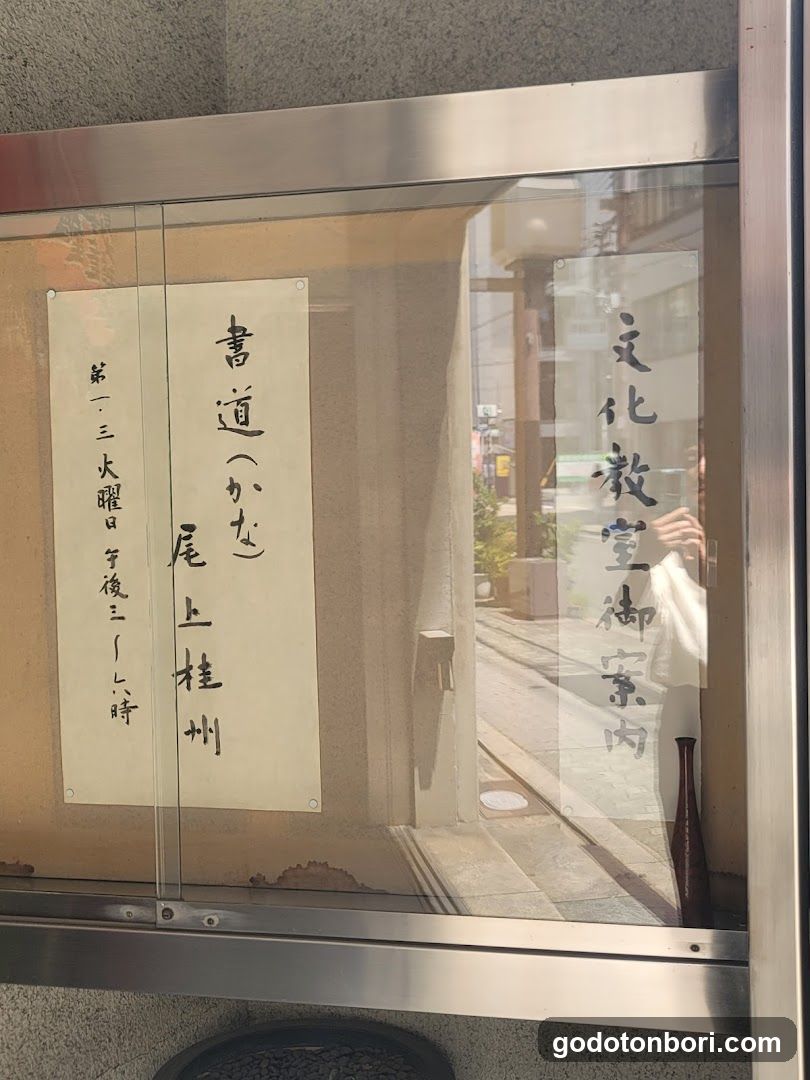 文化教室御案内
書道(かな)
尾上桂州
第一・三火曜日 午後三〜六時
godotonbori.com